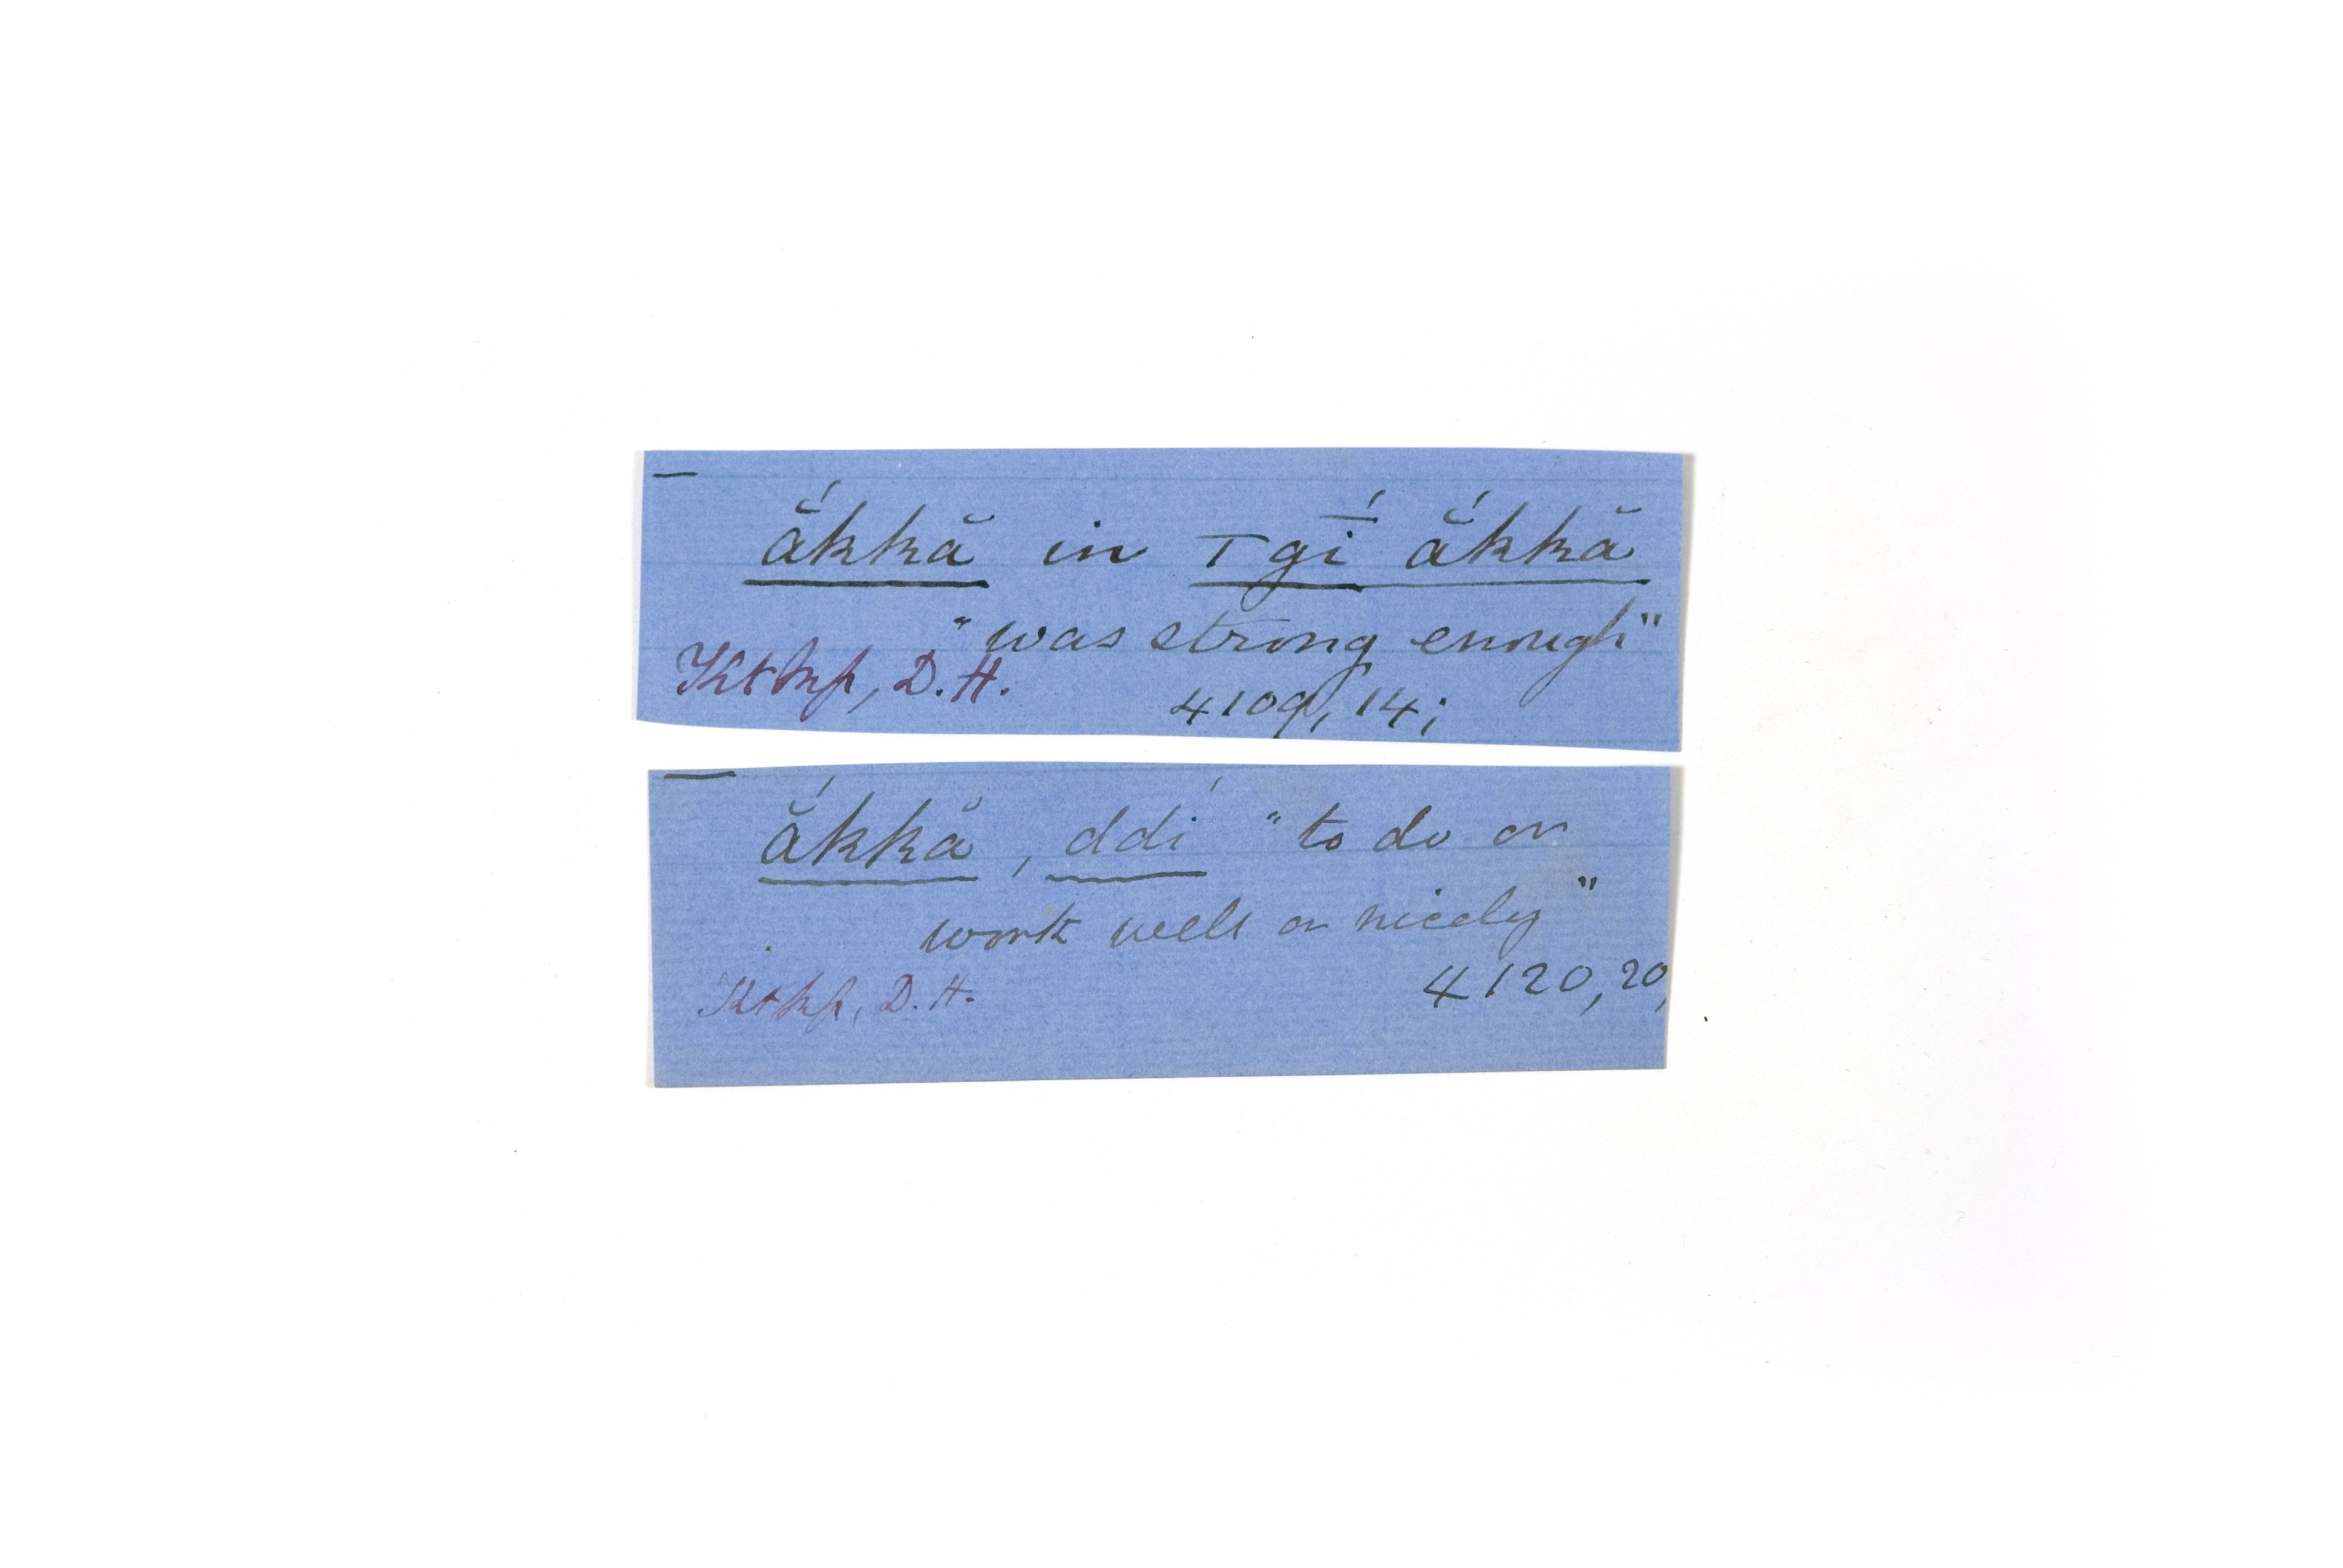 ắkkă in ⊤gī́ ắkkă
"was strong enough"
D. H. 4109, 14;
ắkkă, ddí "to do or
work well or nicely"
D. H. 4120, 20,